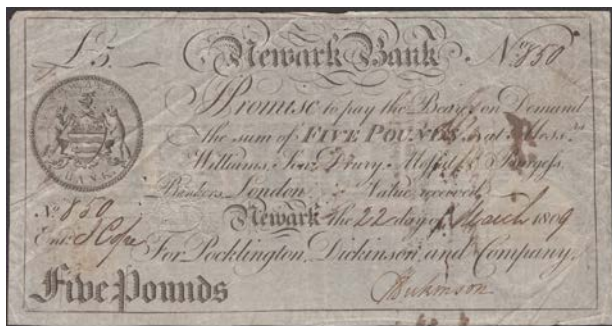 £5. Newark Bank No. 850
BANK
I Promise to pay the Bearer on Demand
the sum of FIVE POUNDS at Messrs.
Williams, Son, Drury, Moffatt & Burgess,
Bankers, London Value received
No. 850 Newark the 22 day of March 1809
Entd.
For Pocklington, Dickinson and Company,
Five Pounds Dickinson